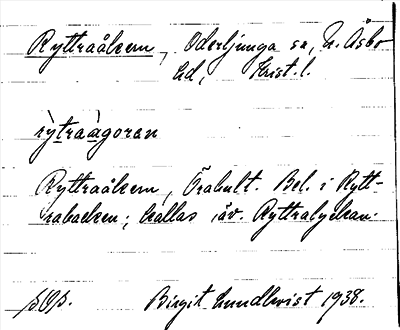 Ryttraåkern, Oderljunga sn, N. Åsbo
hd, Krist. l.
rỳtraàgoran
Ryttraåkern, Örahult. Bel. i Rytt-
rabacken; kallas äv. Ryttralyckan.
Birgit Lundkvist 1938.